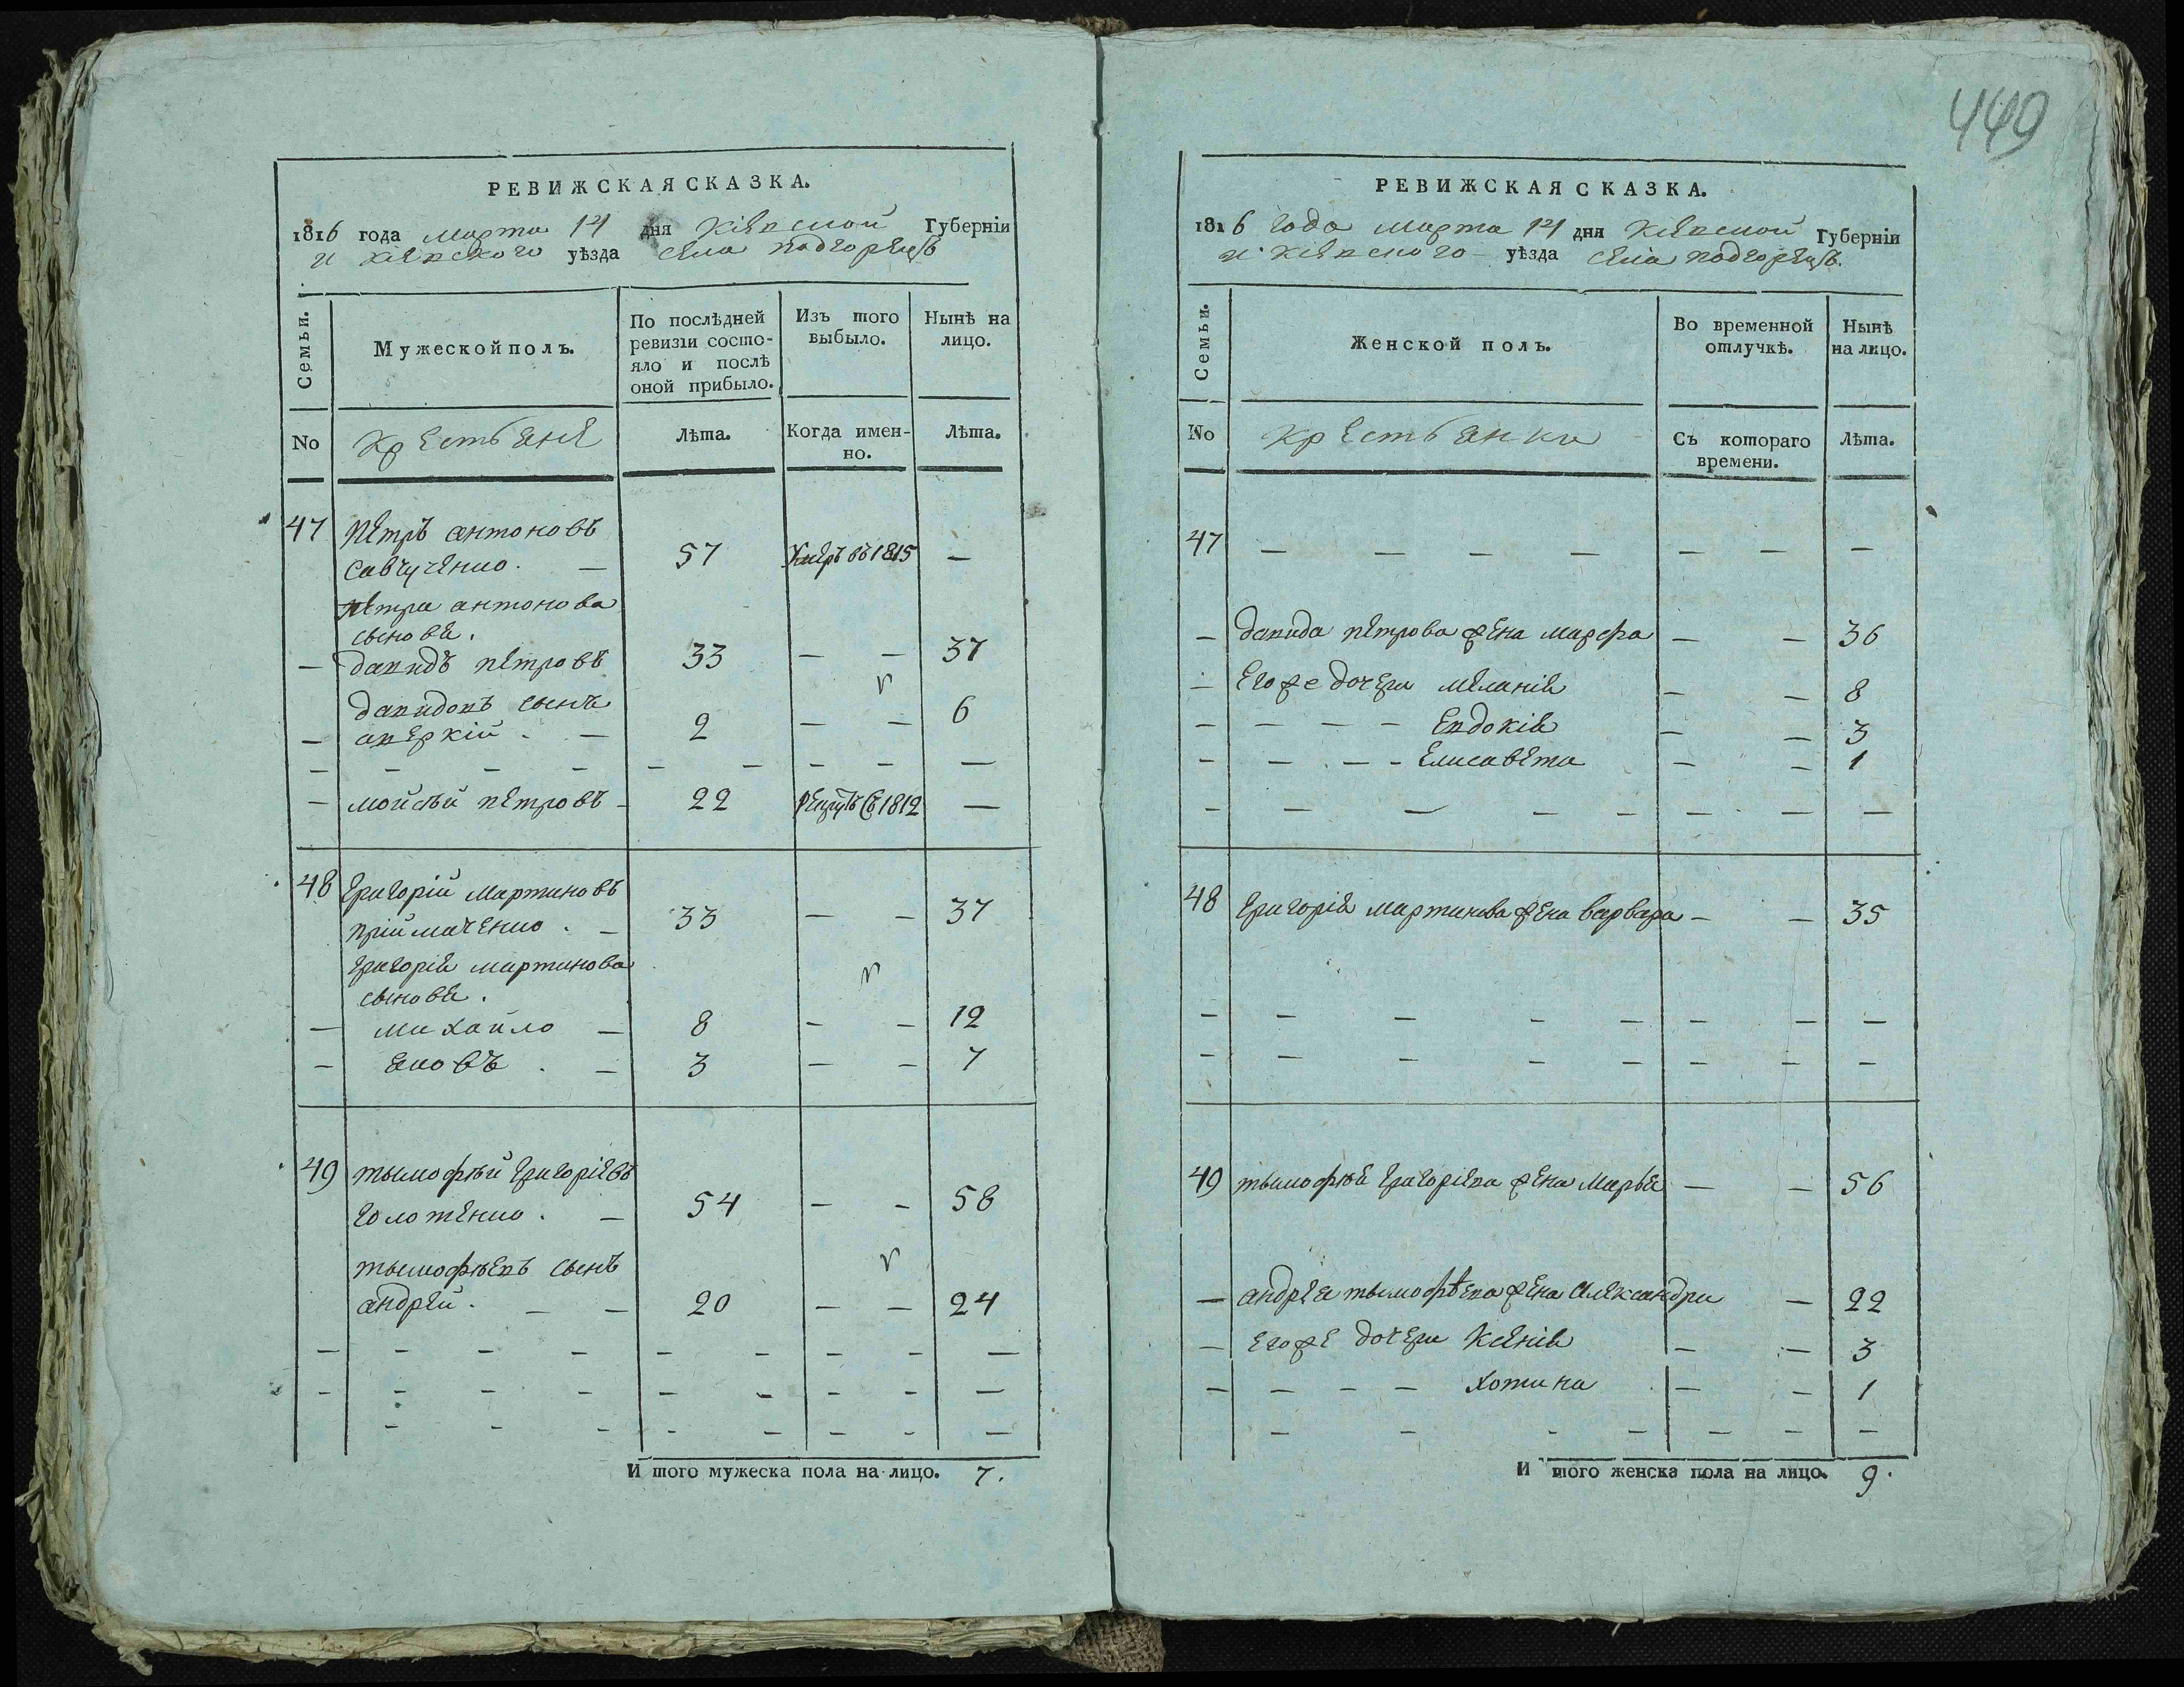 449
РЕВИЖСКАЯ СКАЗКА.
1816 года марта 14 дня Кіевской Губерніи
и Кіевского уѣзда села Подгорецъ
Семьи.
Мужеской полъ.
По послѣдней ревизіи состояло и послѣ оной прибыло.
Изъ того выбыло.
Нынѣ на лицо.
No Крестьяне Лѣта. Когда именно. Лѣта.
47 Петръ антоновъ
Савченко. — 57 Умеръ въ 1815 —
Петра антонова
сыновя.
— давидъ петровъ 33 — — 37
давидовъ сынъ
— аверкій . — 2 — — 6
— — — — — — — — —
— мойсѣй петровъ - 22 рекрутъ съ 1812 —
48 Григорій Мартиновъ
Пріймаченко . — 33 — — 37
Григорія мартинова
сыновя.
— михайло — 8 — — 12
— яковъ . — 3 — — 7
49 тымофѣй Григоріевъ
Голотенко . — 54 — — 58
тымофѣевъ сынъ
андрей. — — 20 — — 24
— — — — — — — — —
— — — — — — — — —
— — — — — — — —
И того мужеска пола на лицо. 7.
РЕВИЖСКАЯ СКАЗКА.
1816 года марта 14 дня Кіевской Губерніи
и Кіевского уѣзда села Подгорецъ.
Семьи.
Женской полъ.
Во временной отлучкѣ.
Нынѣ на лицо.
No Крестьянки Съ котораго времени. Лѣта.
47 — — — — — — —
— давида петрова жена марфа — — 36
— Его же дочери меланія — — 8
— — — — Евдокія — — 3
— — — — Елисавета — — 1
— — — — — — — —
48 Григорія мартинова жена варвара — — 35
— — — — — — — —
— — — — — — — —
49 тымофѣя Григоріева жена Марья — — 56
— андрея тымофѣева жена Александра — 22
— Его же дочери Ксенія — — 3
— — — — Хотина — — 1
— — — — — — —
И того женска пола на лицо. 9.